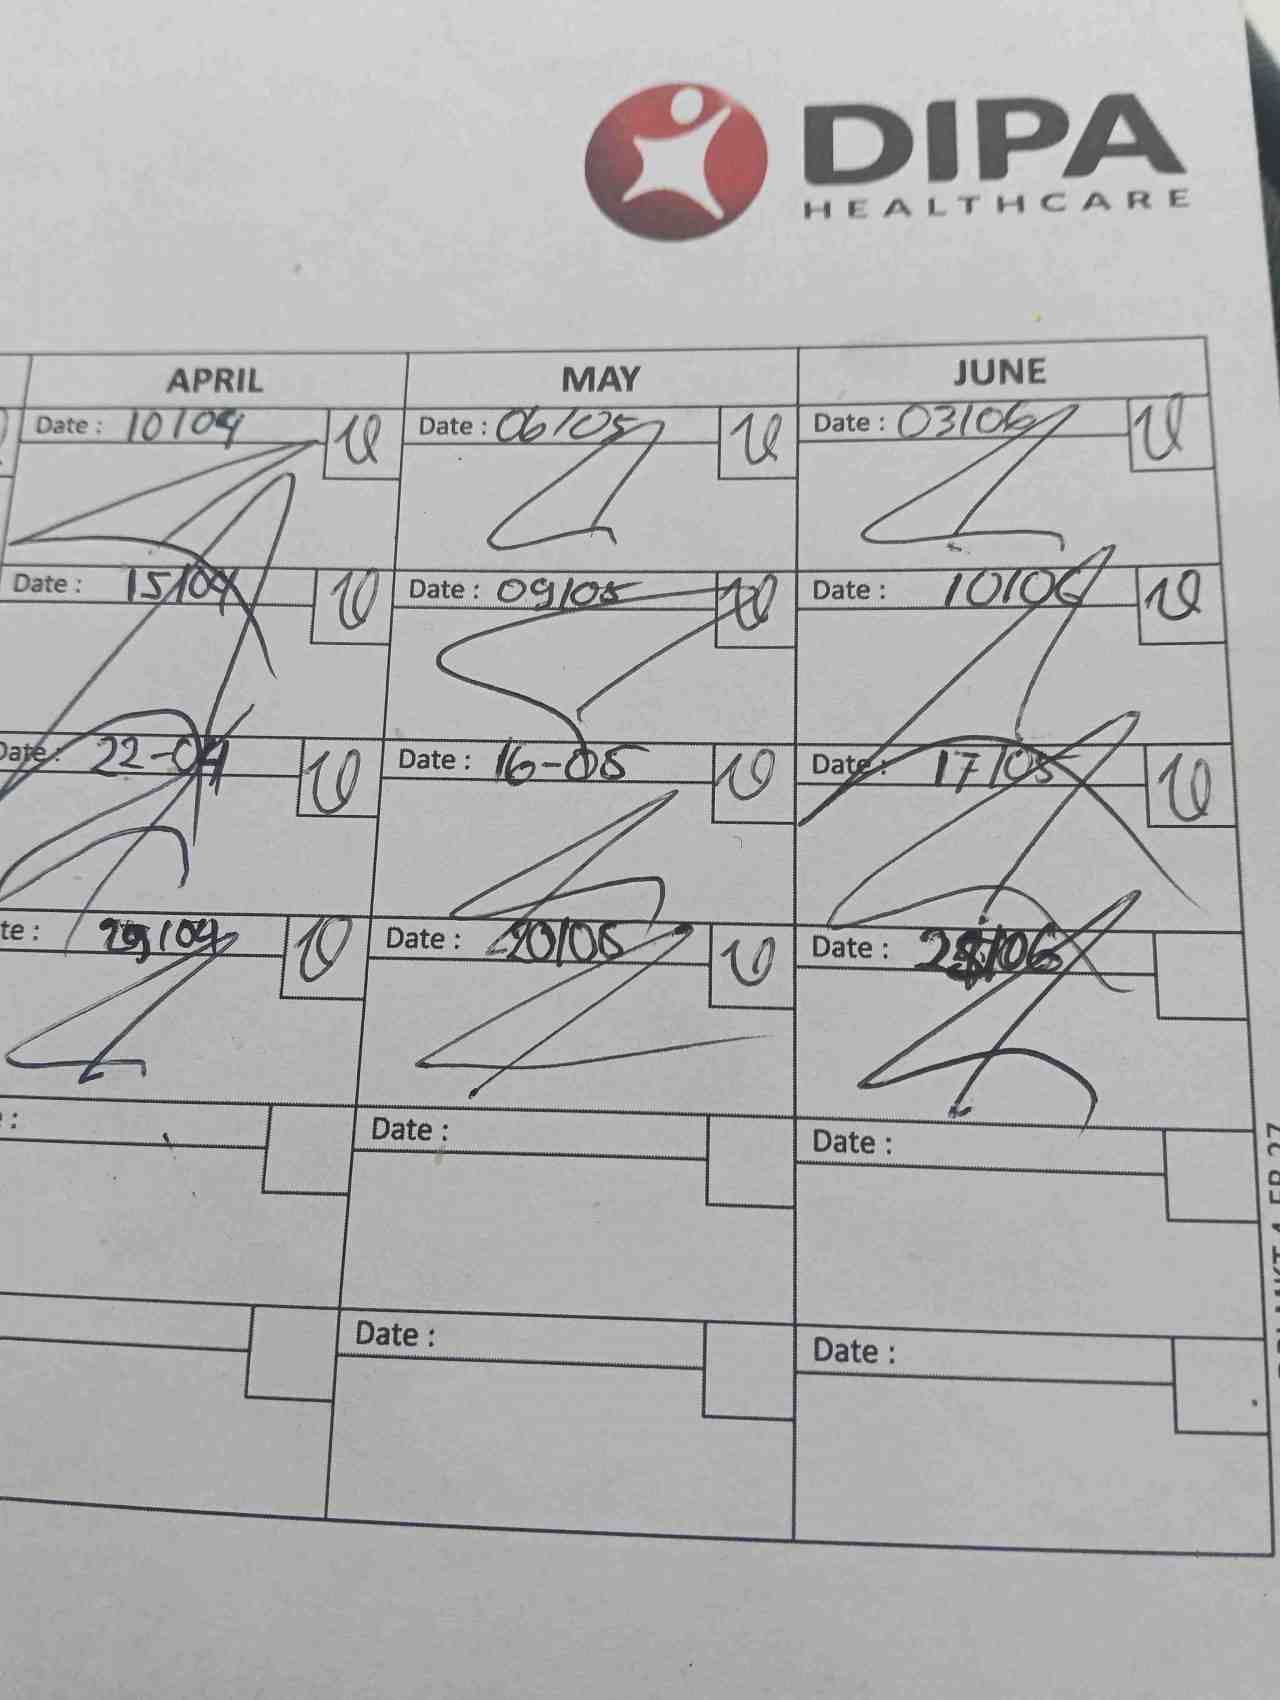 DIPA
HEALTHCARE
APRIL MAY JUNE
Date : 10/04 Date : 06/05 Date : 03/06
Date : 15/04 Date : 09/05 Date : 10/06
Date : 22-04 Date : 16-05 Date : 17/05
te : 29/04 Date : 20/05 Date : /06
: Date : Date :
Date : Date :